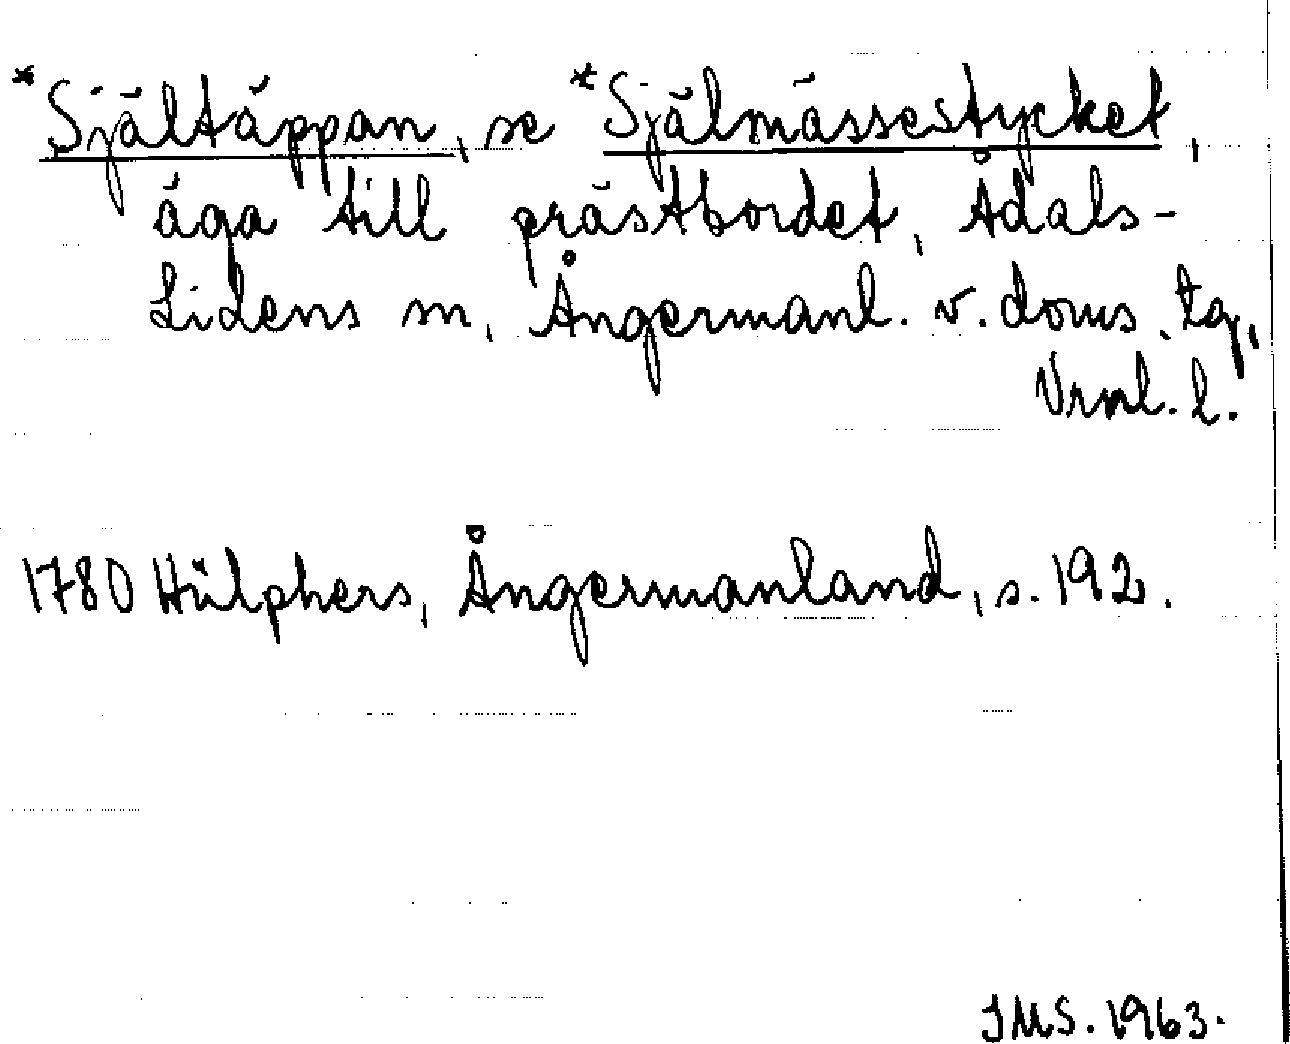 *Själtäppan, se *Själmässestycket,
äga till prästbordet, Ådals-
Lidens sn, Ångermanl. v. doms. tg,
Vrnl. l.
1780 Hülphers, Ångermanland, s. 192.
JMS. 1963.